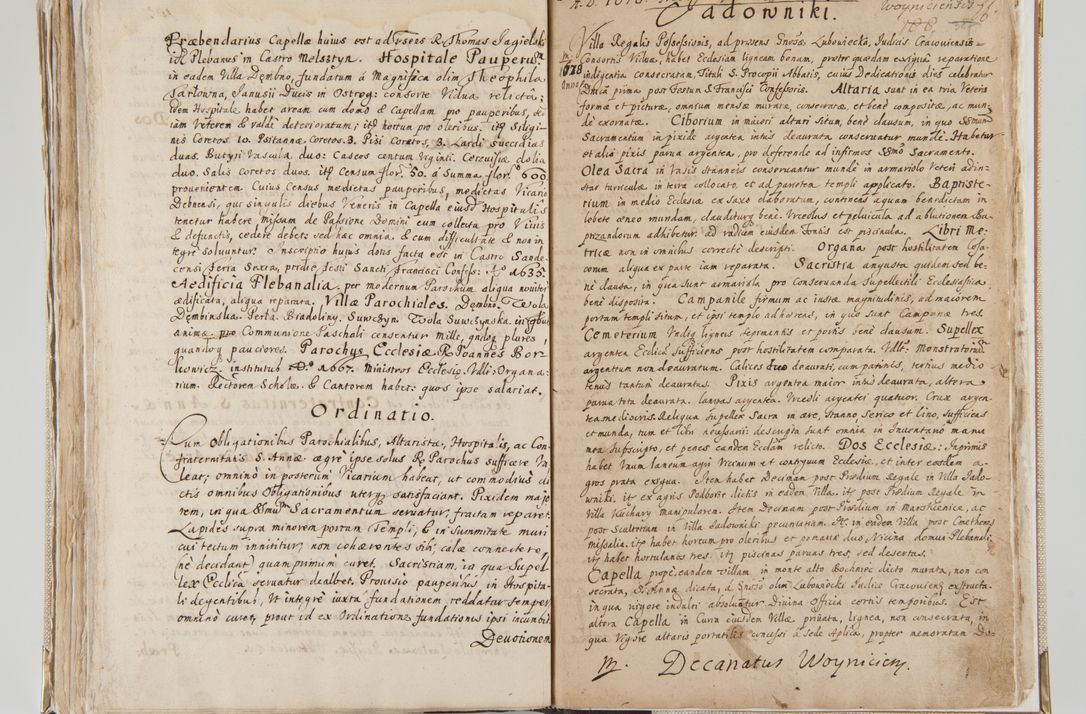 Præbendarius Capellæ huius est ad præsens R. Thomas Jagielsk
id Plebanus in Castro Melsztyn. Hospitale Pauperum
in eadem Villa Dębno, fundatum á Magnifica olim Theophila
Tarłowna, Janusii Ducis in Ostrog: consorte Vidua relicta:
idem Hospitale habet aream cum domo & Capellam pro pauperibus, et
iam Veterem & valde deterioratum; itq hortum pro oleribus. itq Siligi-
nis Coretos 10. Psitannæ Coretos 3. Pisi Coretos, 3. Lardi Succidias
duas. Butyri Vascula duo: Caseos centum Viginti. Cereuisiæ dolia
duo. Salis coretos duos. itq Censum flor. 50. á Summa flor. 600
prouenientem Cuius Census medietas pauperibus, medietas Vicario
Debnensi, qui singulis diebus Veneris in Capella eiusd Hospitalis
tenetur habere missam de Passione Domini cum collecta pro Viuis
& defunctis, cedere debet: sed hæc omnia, & cum difficultate & non in
tegre soluuntur. Inscriptio huius dotis facta est in Castro Sande-
censi feria Sexta, pridie festi Sancti Francisci Confess: Aº 1635.
Aedificia Plebanalia, per modernum Parochum aliqua nouiter
ædificata, aliqua reparata. Villæ Parochiales. Dębno. Wola
Dębinska. Perła. Biadoliny. Suwczyn. Wola Suwczynska. in qbus
animæ pro Communione Paschali censentur Mille, qndoq plures,
quandoq pauciores. Parochus Ecclesiæ R. Joannes Bor
kowicz. institutus Aº 1667. Ministros Ecclesiæ. Vdlt: Organa-
rium. Rectorem Scholæ. & Cantorem habet: quos ipse salariat.
Ordinatio.
Cum Obligationibus Parochialibus, Altaristæ, Hospitalis, ac Con
fraternitatis S. Annæ ægrè ipse solus R. Parochus sufficere Va
leat; omninò in posterum Vicarium habeat, ut commodius di
ctis omnibus Obligationibus uterq satisfaciant. Pixidem majo
rem, in qua SSmum Sacramentum seruatur, fractam reparet.
Lapides supra minorem portam Templi, & in Summitate muri
cui tectum innititur, non cohærentes sibi, calce connectere,
ne decidant quamprimum curet. Sacristiam, in qua Supel
lex Ecclica seruatur dealbet. Prouisio pauperibus in Hospita
li degentibus, Vt integrè iuxta fundationem reddatur semper
omninò curet, prout id ex Ordinatione fundationis ipsi incumbit.
Deuotionem
Jadowniki.
Woyniciensis
Villa Regalis Possessionis, ad præsens Gnosæ Luboniecka, Iudicis Cracouiensis
Consortis Viduæ, habet Ecclesiam ligneam bonam, præter quædam exiguâ reparatione
1618
Anno
indigentia consecratam, Tituli S. Procopii Abbatis, cuius Dedicationis dies celebratur
Dnica prima post festum S. Francisci Confessoris. Altaria sunt in ea tria Veteris
formæ et picturæ, omnium mensæ muratæ, consecratæ, et benè compositæ, ac mun
dè exornatæ. Ciborium in maiori altari Situm, bene clausum, in quo SSmum
Sacramentum in pixide argentea intus deaurata conseruatur mundè. Habetur
et alia pixis parua argentea, pro deferendo ad infirmos SSmo Sacramento.
Olea Sacra in Vasis Stanneis conseruantur mundè in armariolo Veteri adin-
star turriculæ in terra collocato, et ad parietem templi applicato. Baptiste-
rium in medio Ecclesiæ ex saxo elaboratum, continens aquam benedictam in
lebete æneo mundam, clauditurq benè. Vrceolus et peluicula ad ablutionem Ba-
ptizandorum adhibetur. ad radicem eiusdem Fontis est piscinula. Libri Me-
tricæ non in omnibus correcte descripti. Organa post hostilitatem Cosa-
corum aliqua ex parte iam reparata. Sacristia angusta quidem sed be-
nè clausa, in qua sunt armariola pro Conseruanda Supellectili Ecclesiastica
benè disposita. Campanile firmum ac iustæ magnitudinis, ad maiorem
portam templi situm, et ipsi templo adhærens, in quo sunt Campanæ tres.
Cemeterium Vndiq ligneis sepimentis et portis benè clausum. Supellex
argentea Ecclica sufficiens post hostilitatem comparata. Vdlt: Monstratoriū
argenteum non deauratum. Calices tres deaurati, cum patinis, tertius medio
tenus tantum deauratus. Pixis argentea maior intus deaurata, altera
parua tota deaurata. lances argentea. Vrceoli argentei quatuor. Crux argen
tea mediocris. Reliqua supellex Sacra in ære, Stanno Serico et Lino, sufficiens
et munda, tum et libri necessarii: descripta sunt omnia in Inuentario manu
mea Subscripto, et penes eandem Ecclam relicto. Dos Ecclesiæ: Inprimis
habet Vnum laneum agri Vicinum et contiguum Ecclesiæ, et inter eosdem a-
gros prata exigua. Item habet Decimam post Prædium Regale in Villa Jado-
wniki. itq ex agris Podborze dictis in eadem Villa. itq post Prædium Regale in
Villa Kuchary manipularem. Item Decimam post Prædium in Marskienice, ac
post Scultetiam in Villa Jadowniki pecuniariam. itq in eadem Villa post Cmethones
missalia. itq habet hortum pro oleribus et pomaria duo, Vicina domui Plebanali.
itq habet hortulanos tres. itq piscinas paruas tres, sed desertas.
Capella propè eandem villam in monte alto Bocheniec dicto murata, non con
secrata, S. Annæ dicata, á Gnoso olim Lubowiecki Iudice Cracouiensi extructa
in qua uigore indulti absoluuntur Diuina Officia certis temporibus. Est
altera Capella in Curia eiusdem Villæ priuata, lignea, non consecrata, in
qua Vigore altaris portatilis concessi á Sede Aplica, propter memoratam Do-
Decanatus Woynicien.